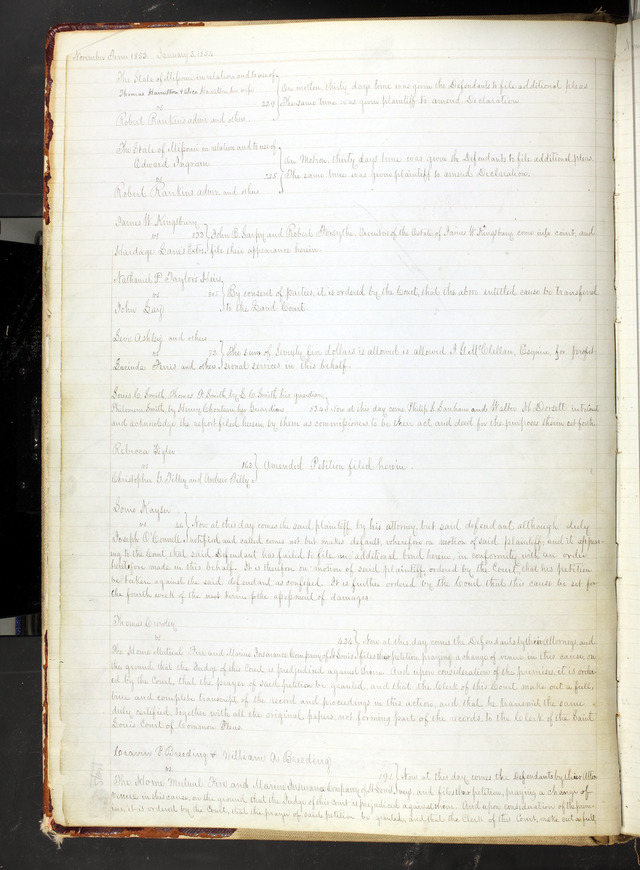 November Term 1853 January 3, 1854
The State of Missouri on relation and to use of
Thomas Hamilton & Hamilton his wife
vs 229
Robert Rankins admr and others
On motion, thirty days time was given the Defendants to file additional pleas
The same time was given plaintiff to amend Declaration
The State of Missouri on relation and to use of
Edward Ingram
vs 225
Robert Rankins admr and others
On Motion, thirty days time was given the Defendants to file additional pleas.
The same time was given plaintiff to amend Declaration.
James W. Kingsbury
vs 133 John B. Sarpy and Robert Forsythe, Executors of the Estate of James W Kingsbury come into court, and
Hardage Lane's Extrs file their appearance herein.
Nathaniel P. Taylor's Heirs
vs By consent of parties, it is ordered by the Court, that the above entitled cause be transferred
John Lay to the Land Court.
Levi Ashley and others
vs 72 The sum of Seventy five dollars is allowed is allowed J. G. McClellan, Esquire, for profes-
Lucinda and others sional services in this behalf.
Louis C. Smith, Thomas Smith by L. C. Smith his guardian
Philomene Smith by Henry Chouteau her Guardian 534 Now at this day come Philip L Lanham and Walter H. Dorsett in
and acknowledge the report filed herein by them as commissioners to be their act and deed for the purposes therein set forth.
Rebecca
vs 162 Amended Petition filed herein.
Christopher G. Tilley and Andrew Tilly
Louis Kayser
vs 46 Now at this day comes the said plaintiff by his attorney, but said defendant although duly
Joseph O'Connell notified and called comes not but makes default, wherefore on motion of said plaintiff, and it appear-
ing to the Court, that said Defendant has failed to file an additional bond herein, in conformity with an order
heretofore made in this behalf. It is therefore on motion of said plaintiff ordered by the Court, that his petition
be taken against the said defendant as confessed. It is further ordered by the Court that this cause be set for
the fourth week of the next term for the assessment of damages.
Thomas Crowder
vs 424 Now at this day comes the Defendants by their Attorney, and
The Home Mutual Fire and Marine Insurance Company of St Louis files their petition, praying a change of venue in this cause, on
the ground that the Judge of this Court is prejudiced against them. And upon consideration of the premises, it is order-
ed by the Court, that the prayer of said petition be granted, and that the Clerk of this Court make out a full,
true and complete transcript of the record and proceedings in this action, and that he transmit the same
duly certified, together with all the original papers, not forming part of the record, to the Clerk of the Saint
Louis Court of Common Pleas.
F Breeding & William A. Breeding
vs 191 Now at this day comes the Defendants by their Attor-
The Home Mutual Fire and Marine Insurance Company of St Louis and files their petition, praying a change of
venue in this cause, on the ground that the Judge of this court is prejudiced against them. And upon consideration of the prem-
ises, it is ordered by the Court, that the prayer of said petition be granted, and that the Clerk of this Court, make out a full,